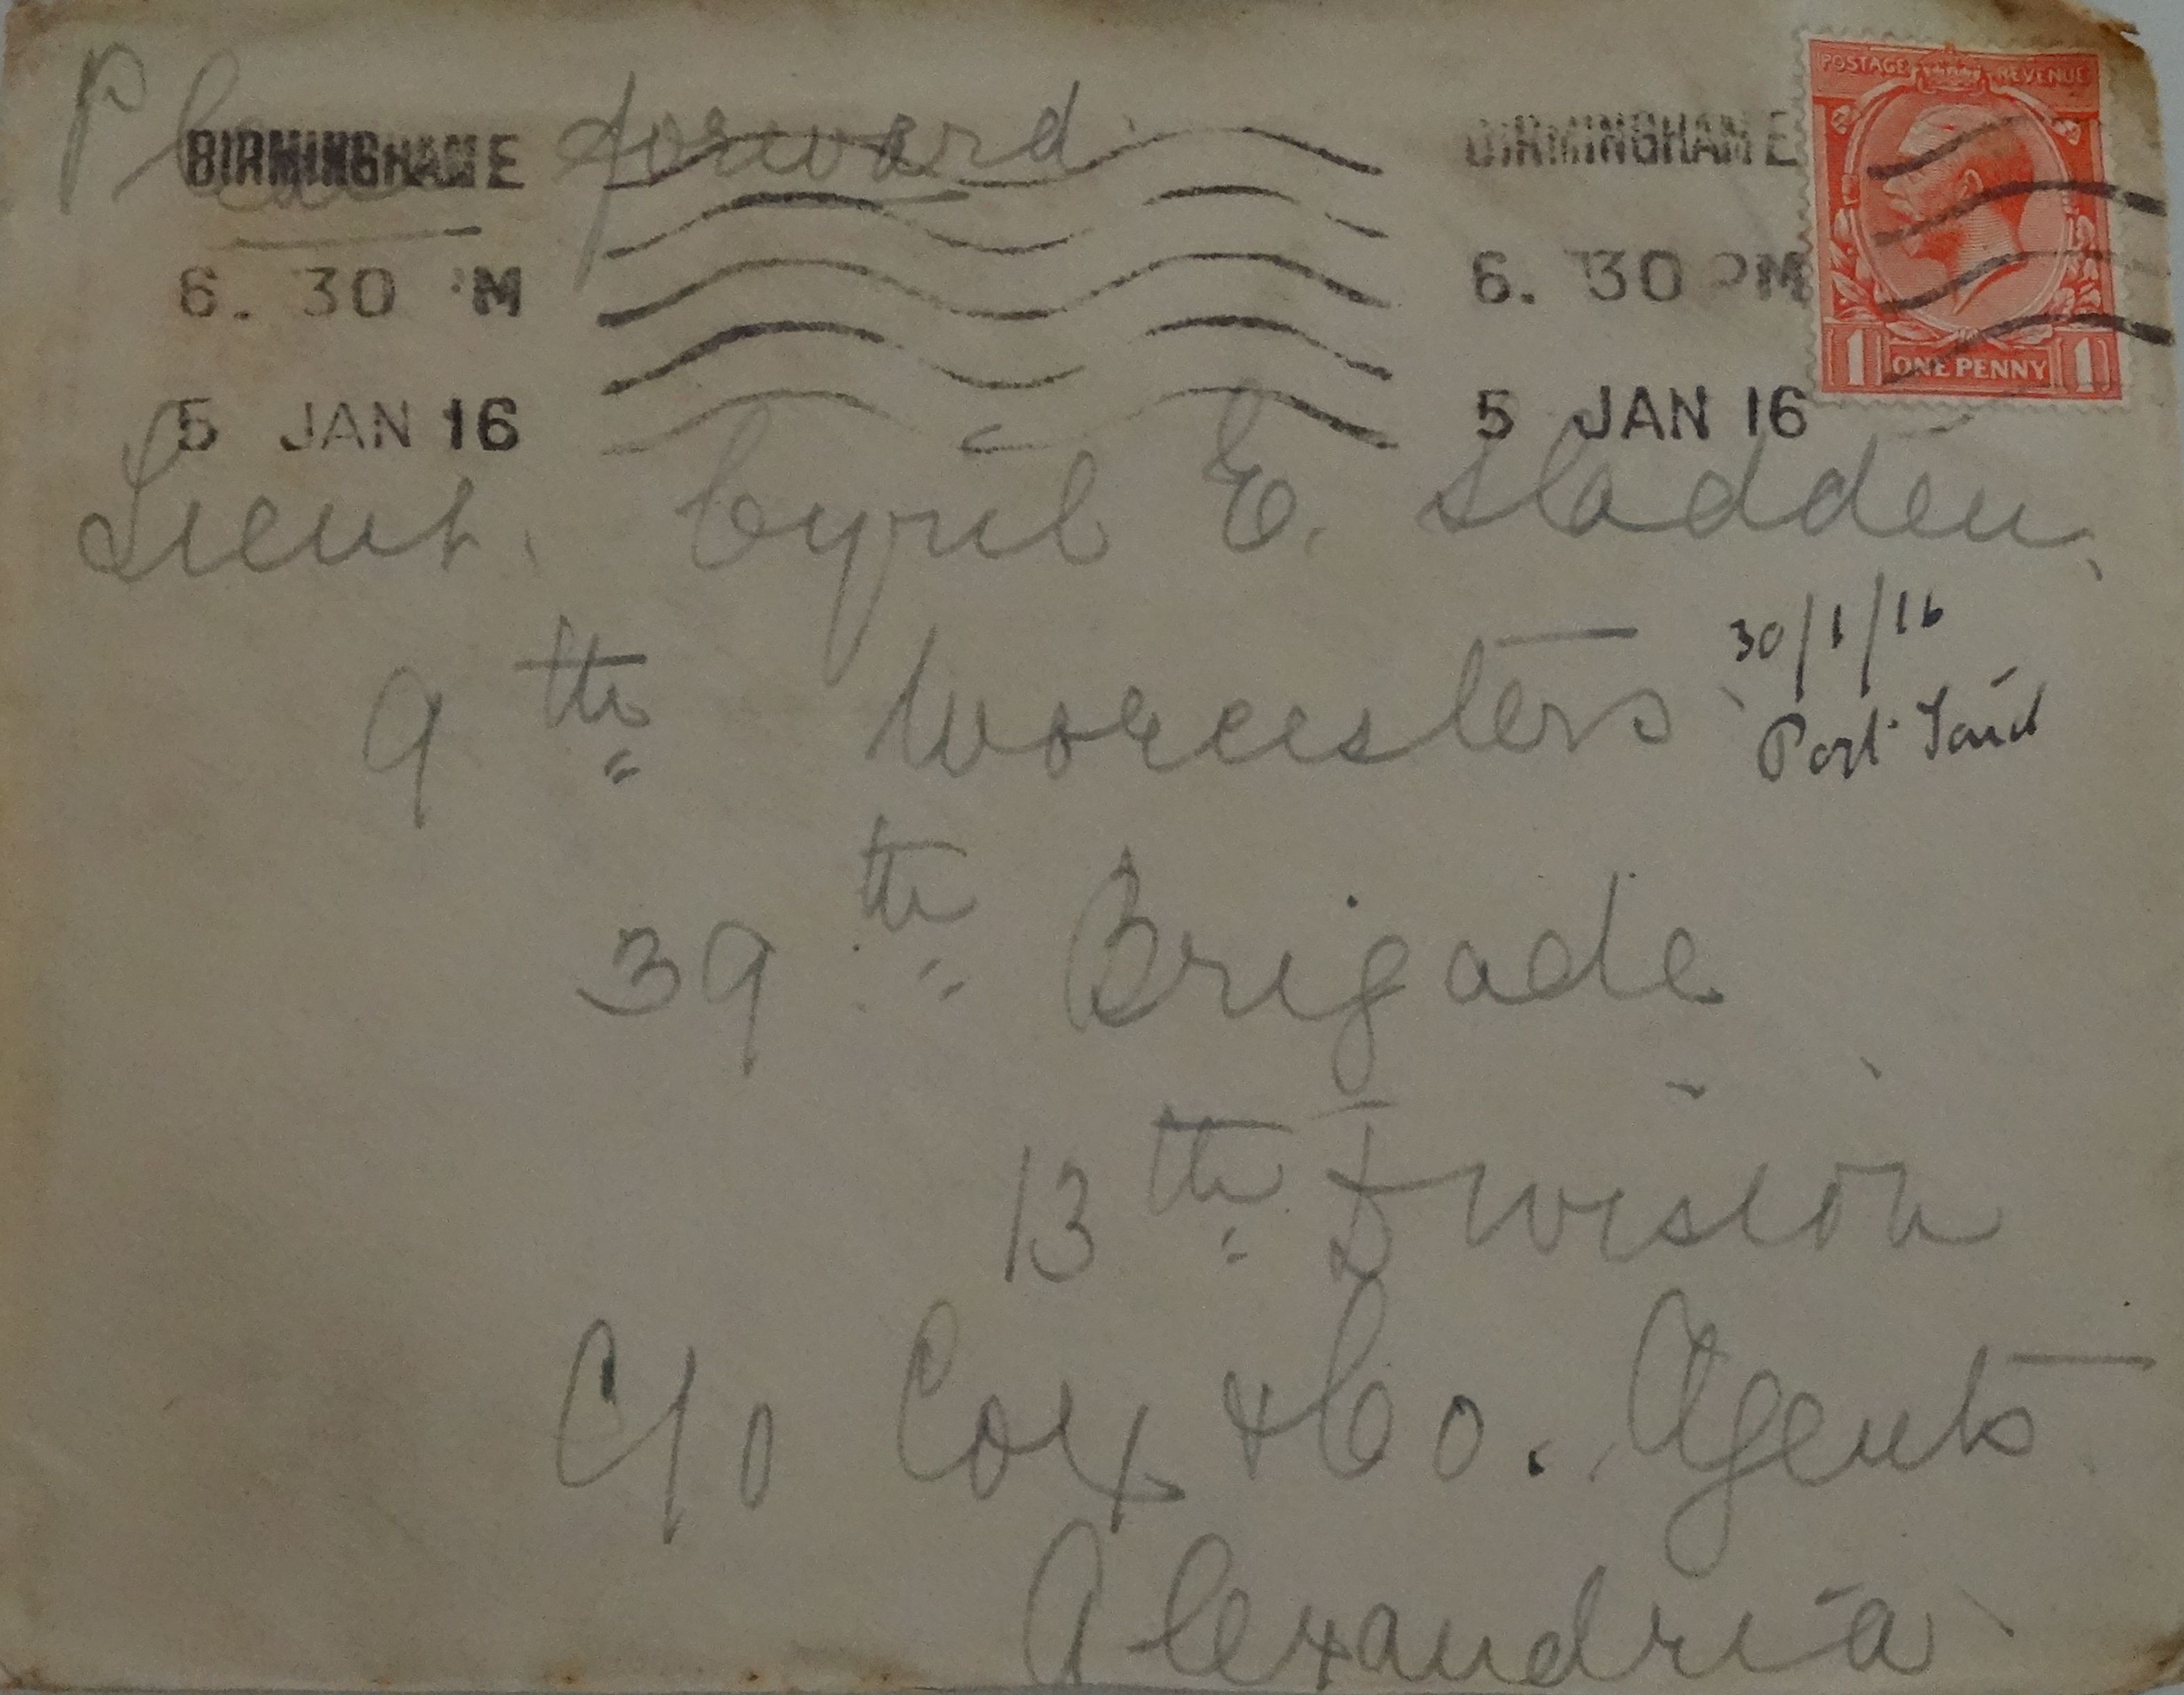 Please forward.
BIRMINGHAM E
6. 30 M
5 JAN 16
BIRMINGHAM E
6. 30 PM
5 JAN 16
POSTAGE REVENUE
1 ONE PENNY 1
Lieut. Cyril E. Sladden,
9th Worcesters.
30/1/16
Port Said
39th Brigade
13th Division
C/o Cox & Co. Agents
Alexandria.